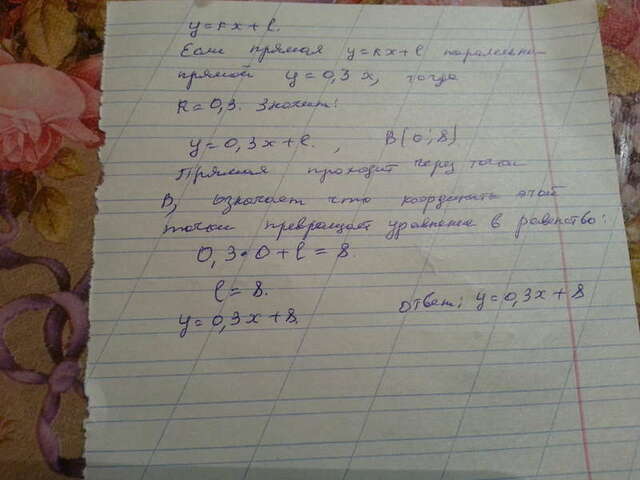 y=kx+l.
Если прямая y=kx+l паралельна
прямой y=0,3x, тогда
k=0,3. Значит:
y=0,3x+l. , B(0;8)
Прямая проходит через точку
B, означает что координаты этой
точки превращает уравнение в равенство:
0,3•0+l=8.
l=8.
y=0,3x+8.
Ответ: y=0,3x+8